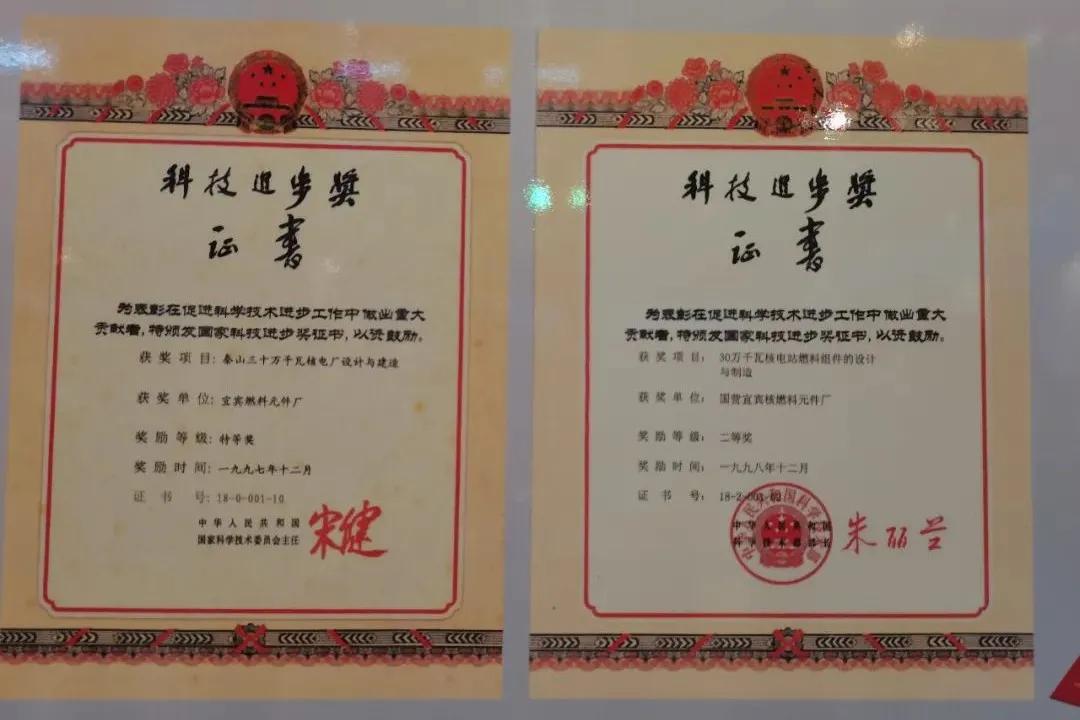 科技进步奖
证书
为表彰在促进科学技术进步工作中做出重大
贡献者，特颁发国家科技进步奖证书，以资鼓励。
获奖项目：秦山三十万千瓦核电厂设计与建造
获奖单位：宜宾燃料元件厂
奖励等级：特等奖
奖励时间：一九九七年十二月
证书号：18-0-001-10
中华人民共和国
国家科学技术委员会主任
宋健
科技进步奖
证书
为表彰在促进科学技术进步工作中做出重大
贡献者，特颁发国家科技进步奖证书，以资鼓励。
获奖项目：30万千瓦核电站燃料组件的设计
与制造
获奖单位：国营宜宾核燃料元件厂
奖励等级：二等奖
奖励时间：一九九八年十二月
证书号：18-2-001-
中华人民共和国
科学技术部部长
朱丽兰